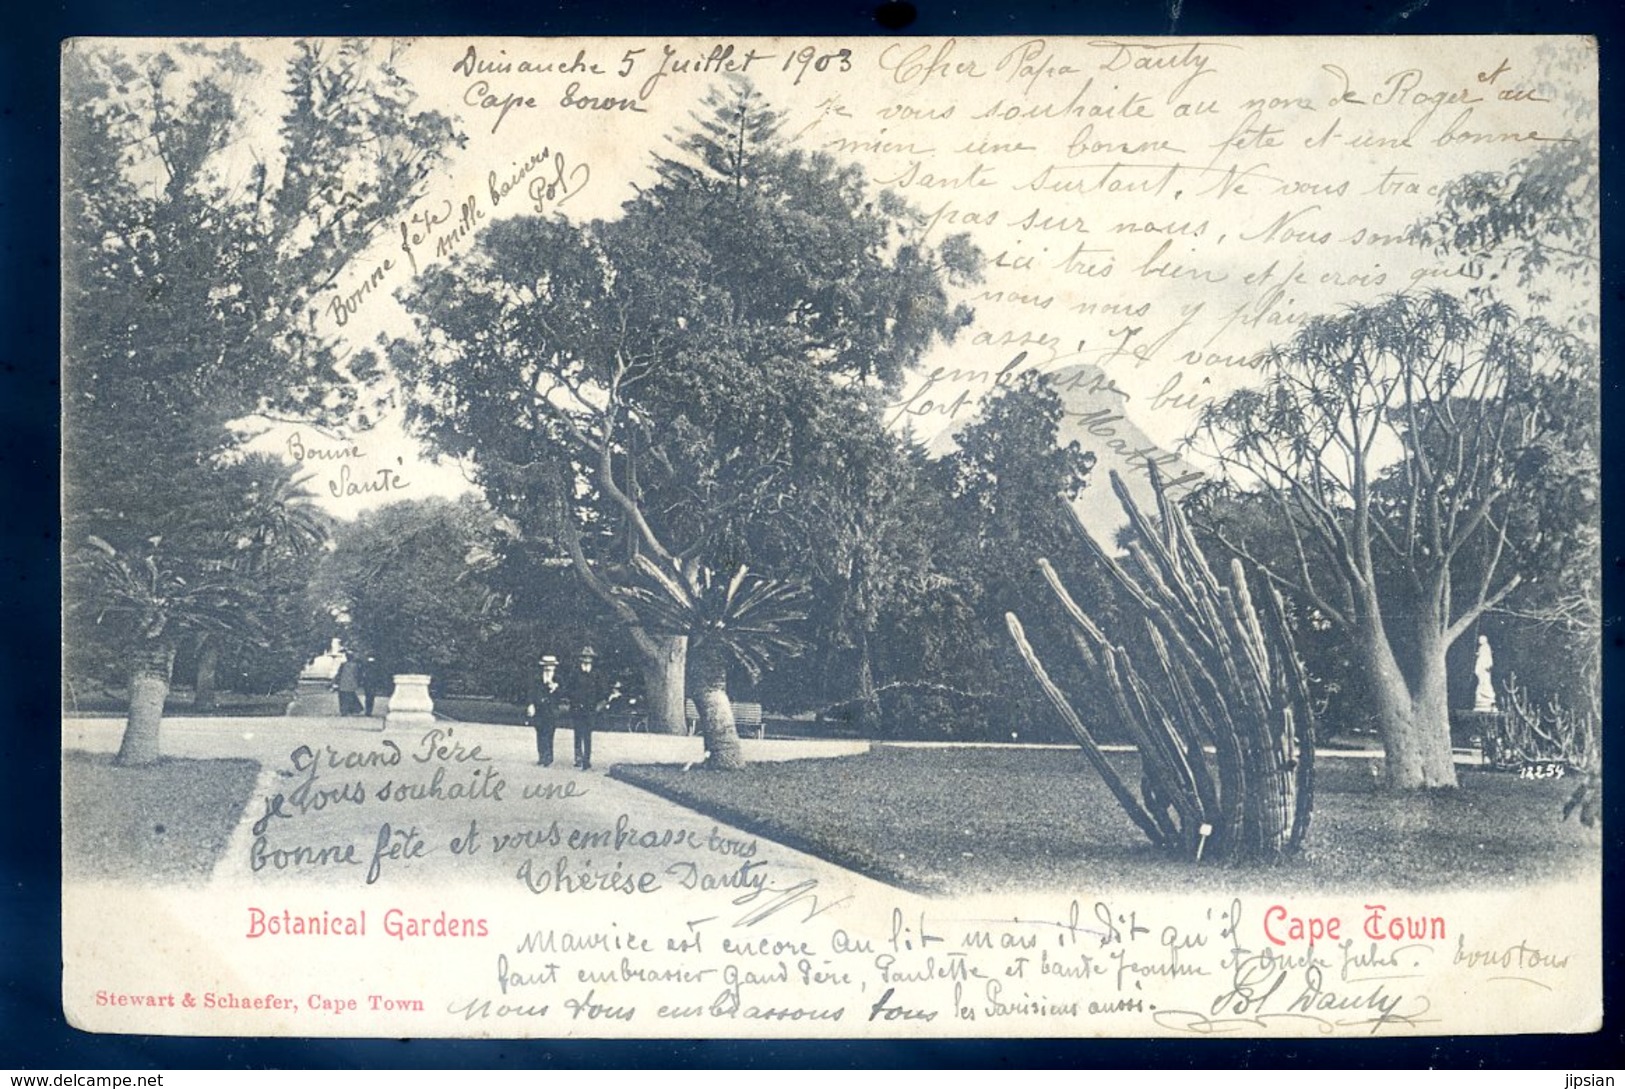 Dimanche 5 Juillet 1903
Cape Town
Cher Papa Dauty
Je vous souhaite au nom de Roger et au
mien une bonne fête et une bonne
Santé surtout. Ne vous tracas
pas sur nous. Nous sommes
ici très bien et je crois que
nous nous y plairons
assez. Je vous
embrasse bien
fort Mathil
Bonne fête
mille baisers
Pol
Bonne
Santé
Grand Père
je vous souhaite une
bonne fête et vous embrasse tous
Thérèse Dauty
Botanical Gardens
Cape Town
12254
Maurice est encore au lit mais il dit qu'il
faut embrasser Grand Père, Paulette et tante Jeanne et Oncle Jules. tous tous
Nous vous embrassons tous les Parisiens aussi. Pol Dauty
Stewart & Schaefer, Cape Town
jipsian